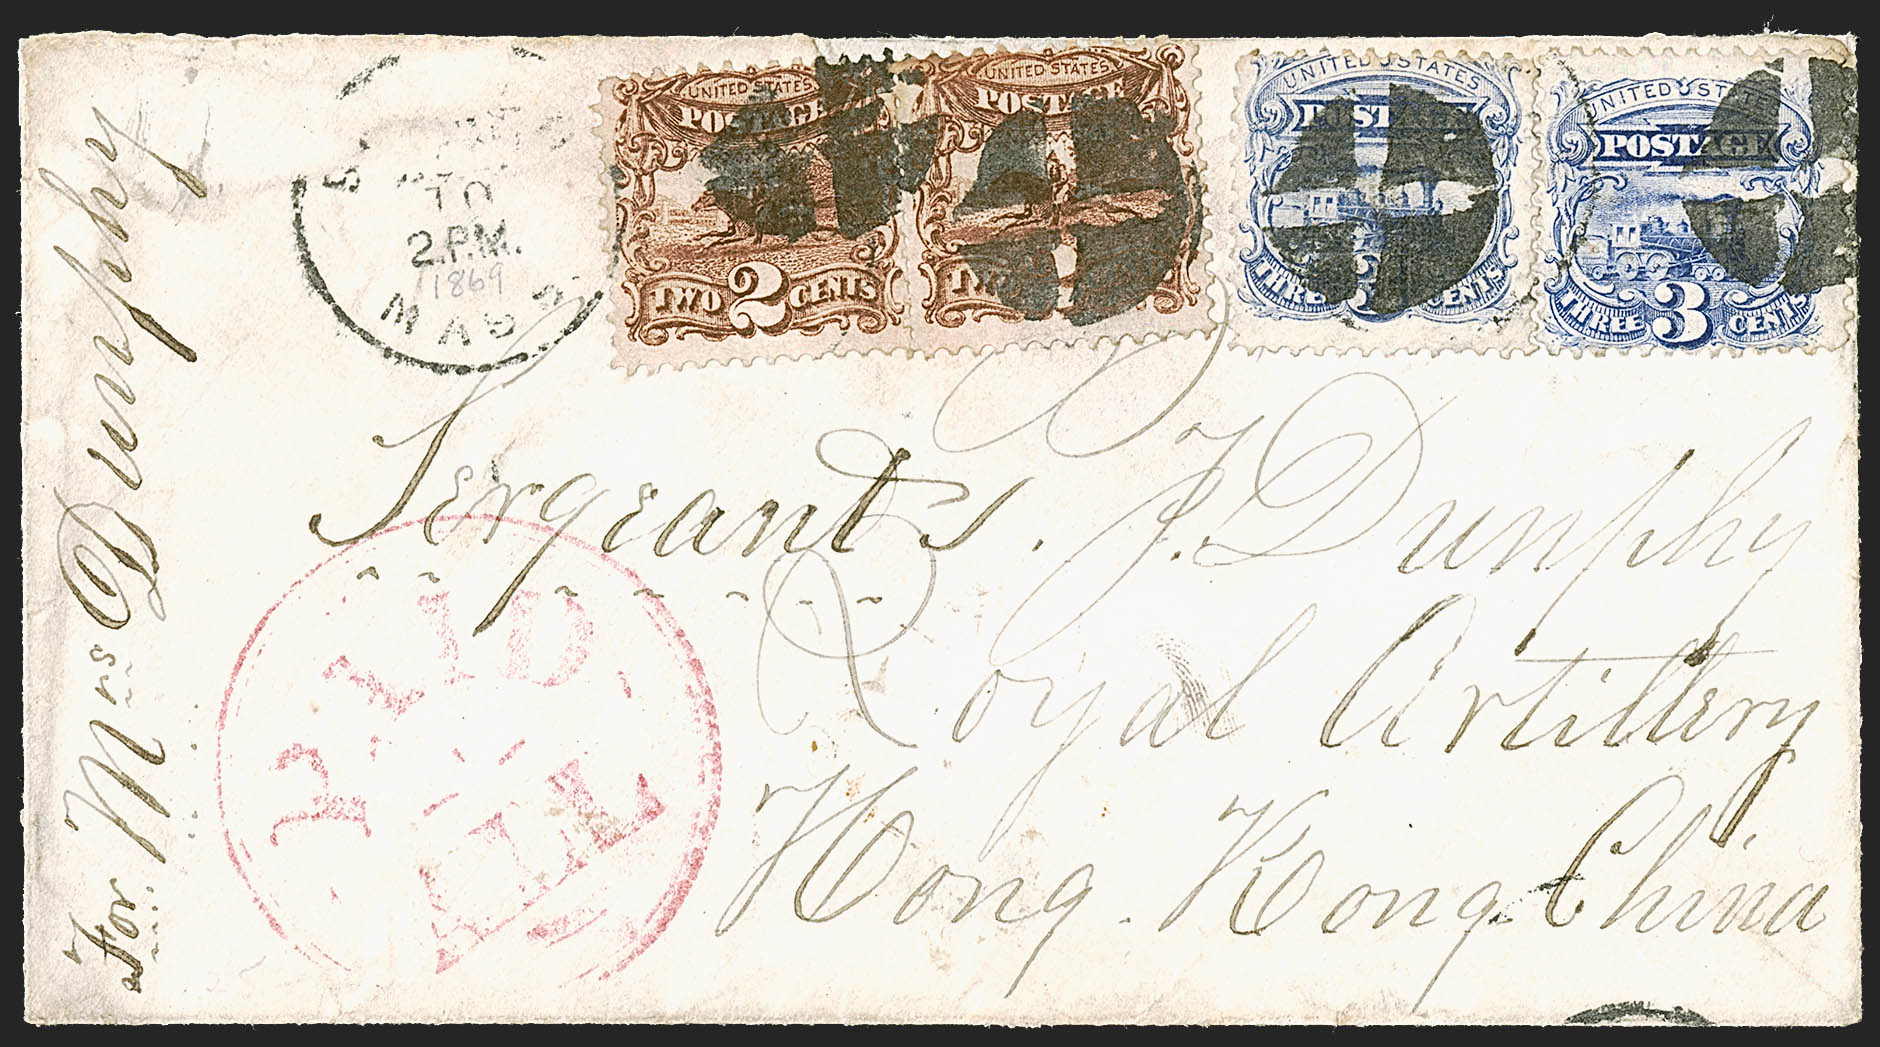 10
2.P.M.
1869
MASS
UNITED STATES
POSTAGE
TWO 2 CENTS
UNITED STATES
POSTAGE
UNITED STATES
POSTAGE
THREE CENTS
UNITED
POSTAGE
THREE 3 CENTS
Sergeants. J. Dunphy
Royal Artillery
Hong. Kong China
For. Mrs Dunphy
PAID
ALL